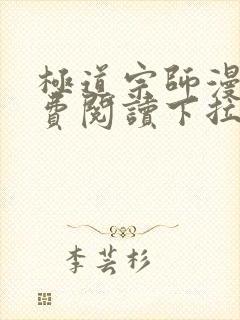 極道宗師漫
費閱讀下拉
李芸杉